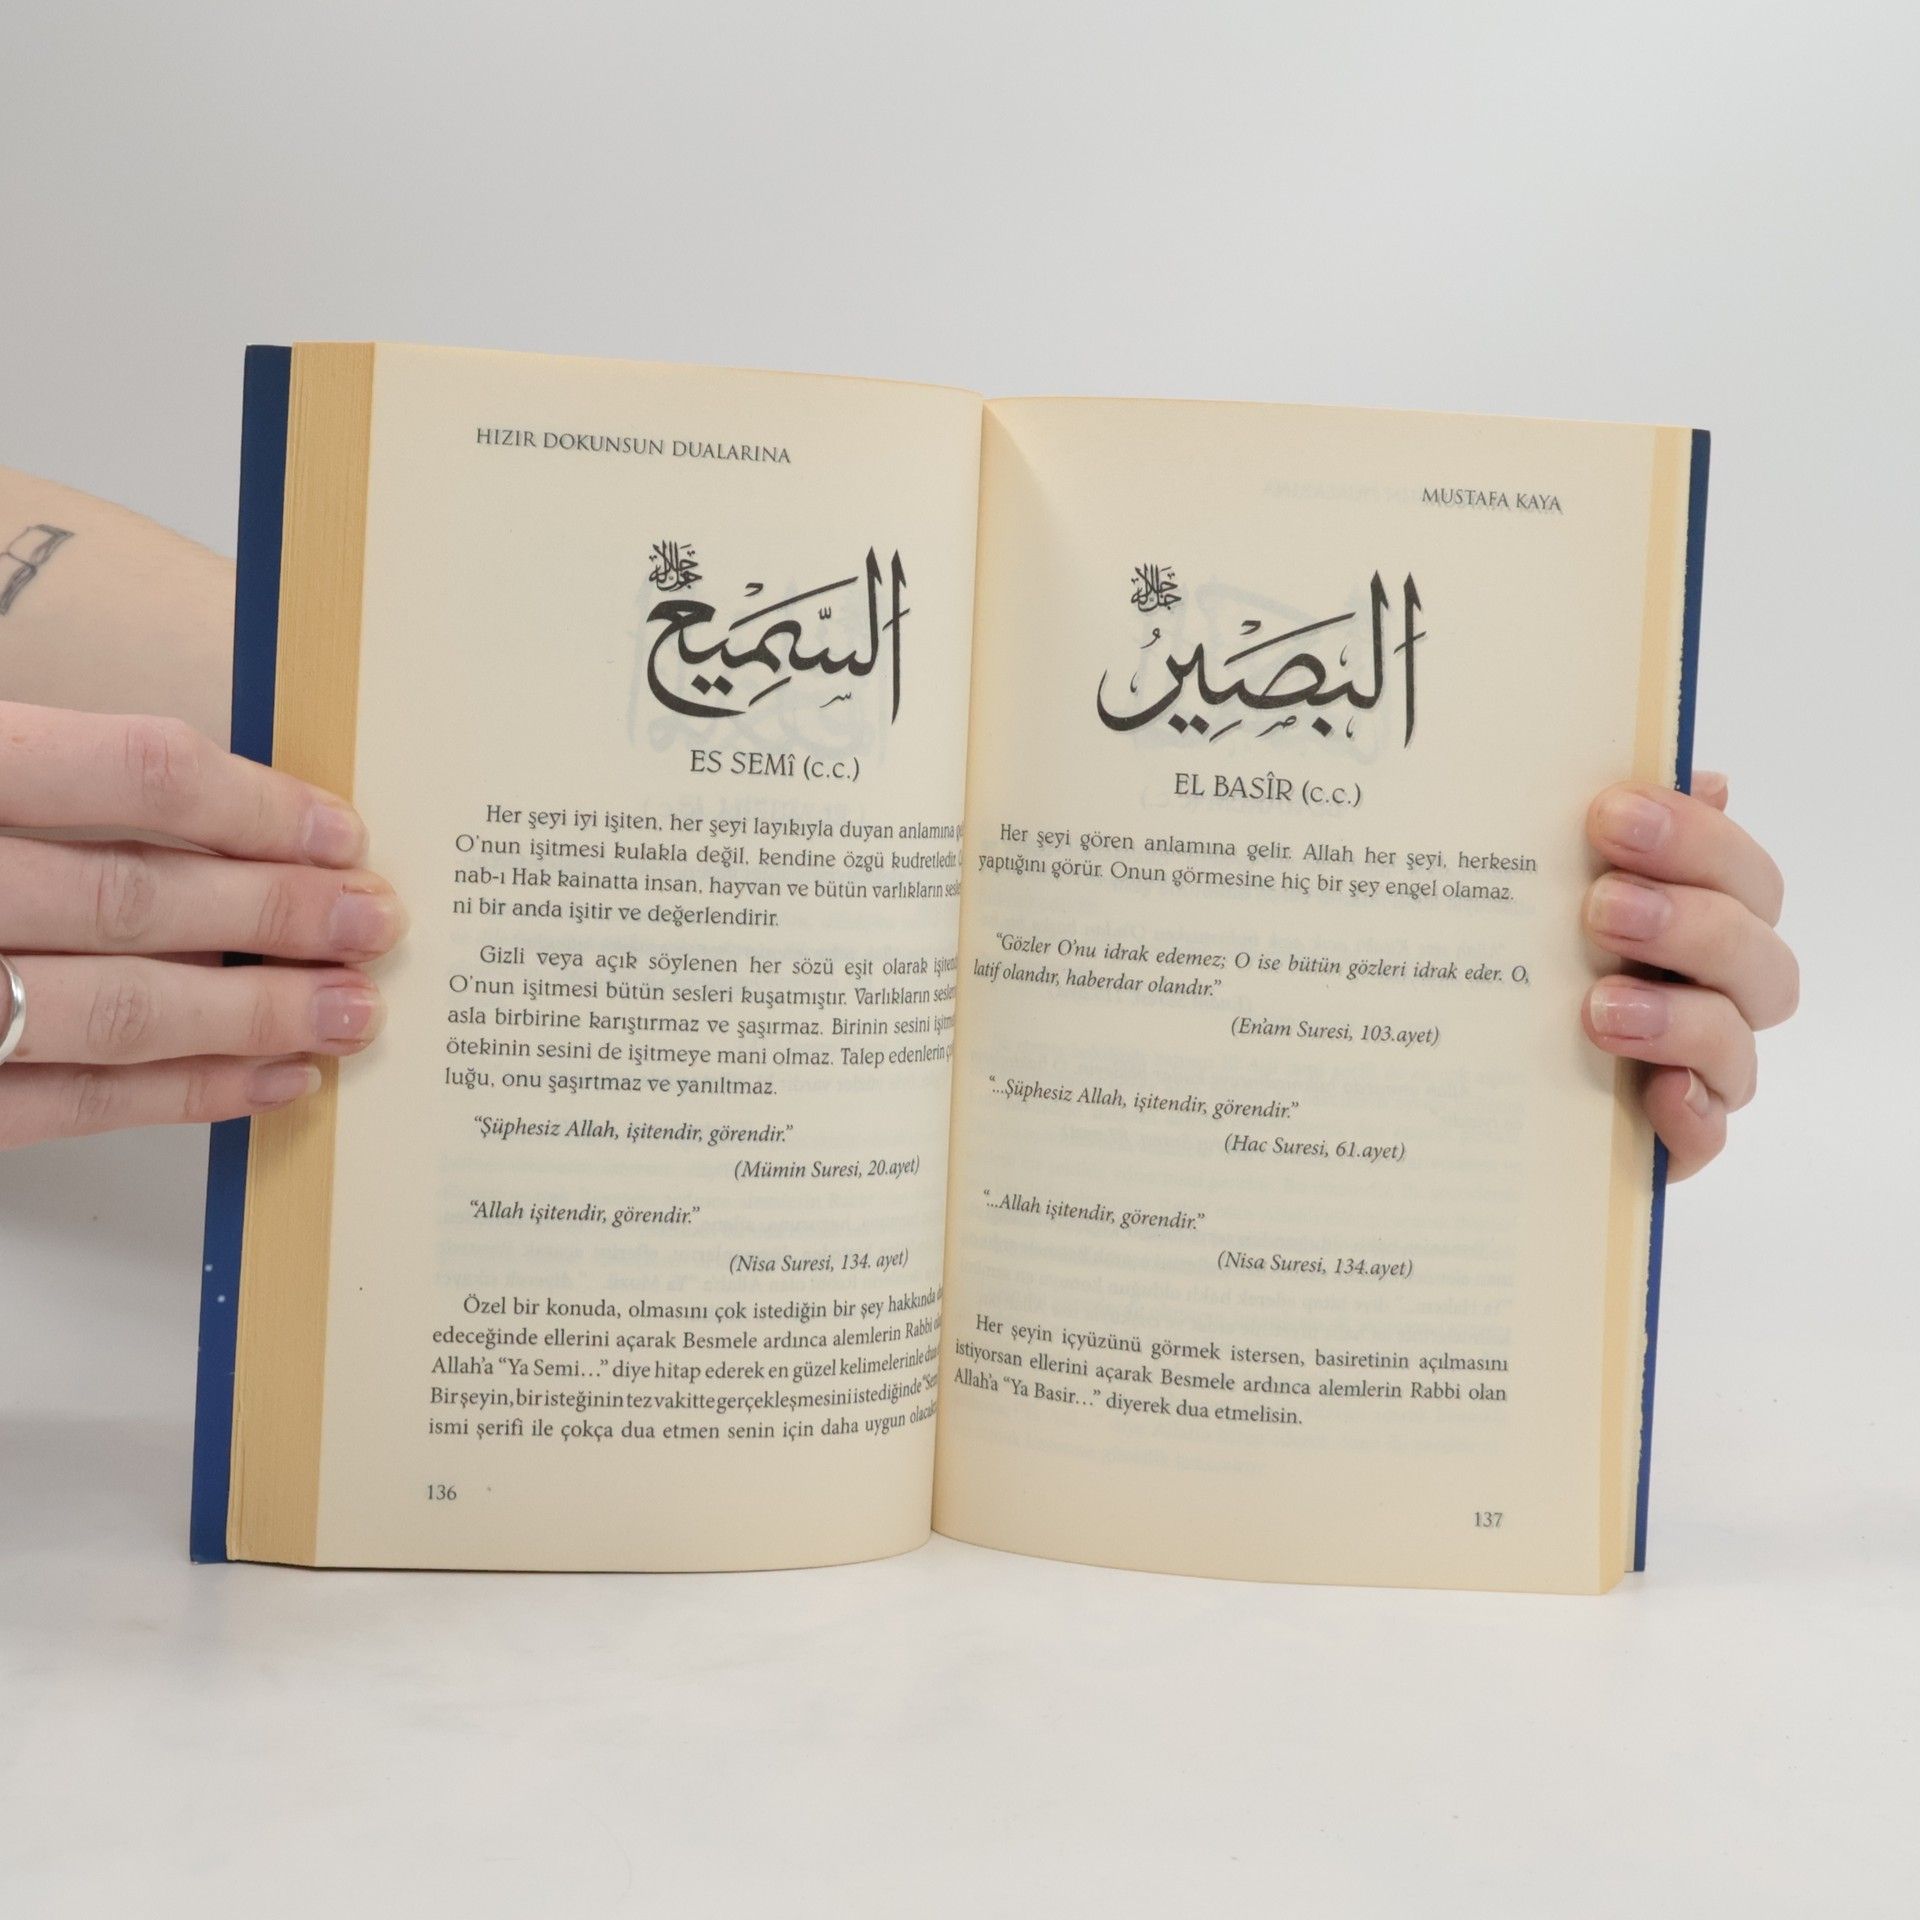 HIZIR DOKUNSUN DUALARINA
جل جلاله
السَّمِيعُ
ES SEMÎ (c.c.)
Her şeyi iyi işiten, her şeyi layıkıyla duyan anlamına
O'nun işitmesi kulakla değil, kendine özgü kudretledir.
nab-ı Hak kainatta insan, hayvan ve bütün varlıkların
ni bir anda işitir ve değerlendirir.
Gizli veya açık söylenen her sözü eşit olarak
O'nun işitmesi bütün sesleri kuşatmıştır. Varlıkların
asla birbirine karıştırmaz ve şaşırmaz. Birinin sesini
ötekinin sesini de işitmeye mani olmaz. Talep edenlerin
luğu, onu şaşırtmaz ve yanıltmaz.
“Şüphesiz Allah, işitendir, görendir.”
(Mümin Suresi, 20.ayet)
“Allah işitendir, görendir.”
(Nisa Suresi, 134. ayet)
Özel bir konuda, olmasını çok istediğin bir şey hakkında
edeceğinde ellerini açarak Besmele ardınca alemlerin Rabbi
Allah'a “Ya Semi…” diye hitap ederek en güzel kelimelerinle
Bir şeyin, bir isteğinin tez vakitte gerçekleşmesini istediğinde
ismi şerifi ile çokça dua etmen senin için daha uygun
136
MUSTAFA KAYA
جل جلاله
البَصِيرُ
EL BASÎR (c.c.)
Her şeyi gören anlamına gelir. Allah her şeyi, herkesin
yaptığını görür. Onun görmesine hiç bir şey engel olamaz.
“Gözler O'nu idrak edemez; O ise bütün gözleri idrak eder. O,
latif olandır, haberdar olandır.”
(En'am Suresi, 103.ayet)
“...Şüphesiz Allah, işitendir, görendir.”
(Hac Suresi, 61.ayet)
“...Allah işitendir, görendir.”
(Nisa Suresi, 134.ayet)
Her şeyin içyüzünü görmek istersen, basiretinin açılmasını
istiyorsan ellerini açarak Besmele ardınca alemlerin Rabbi olan
Allah'a “Ya Basir…” diyerek dua etmelisin.
137